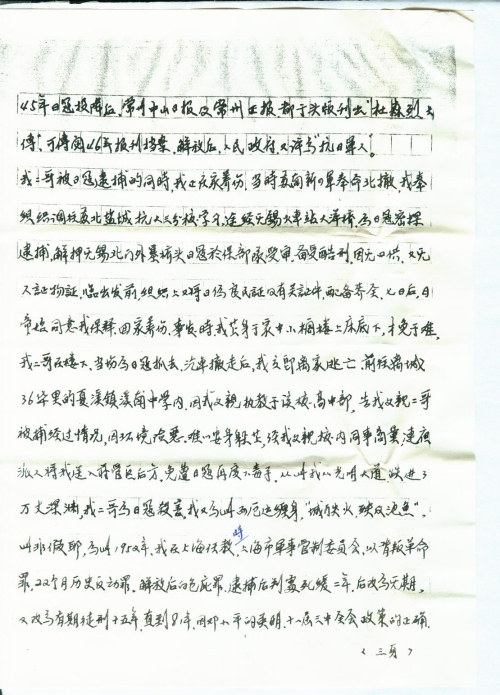 45年日寇投降后，常州中山日报及常州正报都于头版刊出"杜
传"，可传阅46年报刊档案。解放后，人民政府又评为"抗日军人"
我二哥被日寇逮捕的同时，我正在家养伤，当时新四军奉命北撤，我奉
组织调往苏北盐城抗大三分校学习，途经无锡火车站，为日寇密探
逮捕，解押无锡北门外日寇宪兵队部受审，备受酷刑，因无口供，又无
人证物证，临出发前，组织上又将日伪良民证及有关证件，配备齐全，七日后，日
帝始同意我保释，回家养伤，事发时我于家中小阁楼上床底下，才免于难，
我二哥在楼下，当场为日寇抓去，汽车撤走后，我立即离家逃亡，前往离城
36华里的夏溪镇中学内，因我父亲执教于该校高中部，告我父亲二哥
被捕经过情况，因环境险恶，难以安身，该我父亲校内同事商量，速
派人将我送入蒋管区后方，免遭日寇再度下毒手，从此我从光明大道跌进了
万丈深渊，我二哥为日寇杀害，我又为此厄运缠身，"城门失火殃及池鱼"，
此非假耶，为此1952年，我在上海任教时，上海市军事管制委员会，以背叛革命
罪，22个月历史反动罪，解放后的包庇罪，逮捕后判处死缓二年，后改为无期，
又改为有期徒刑十五年，直到81年，因邓小平的英明，十一届三中全会政策的正确，
〈三页〉